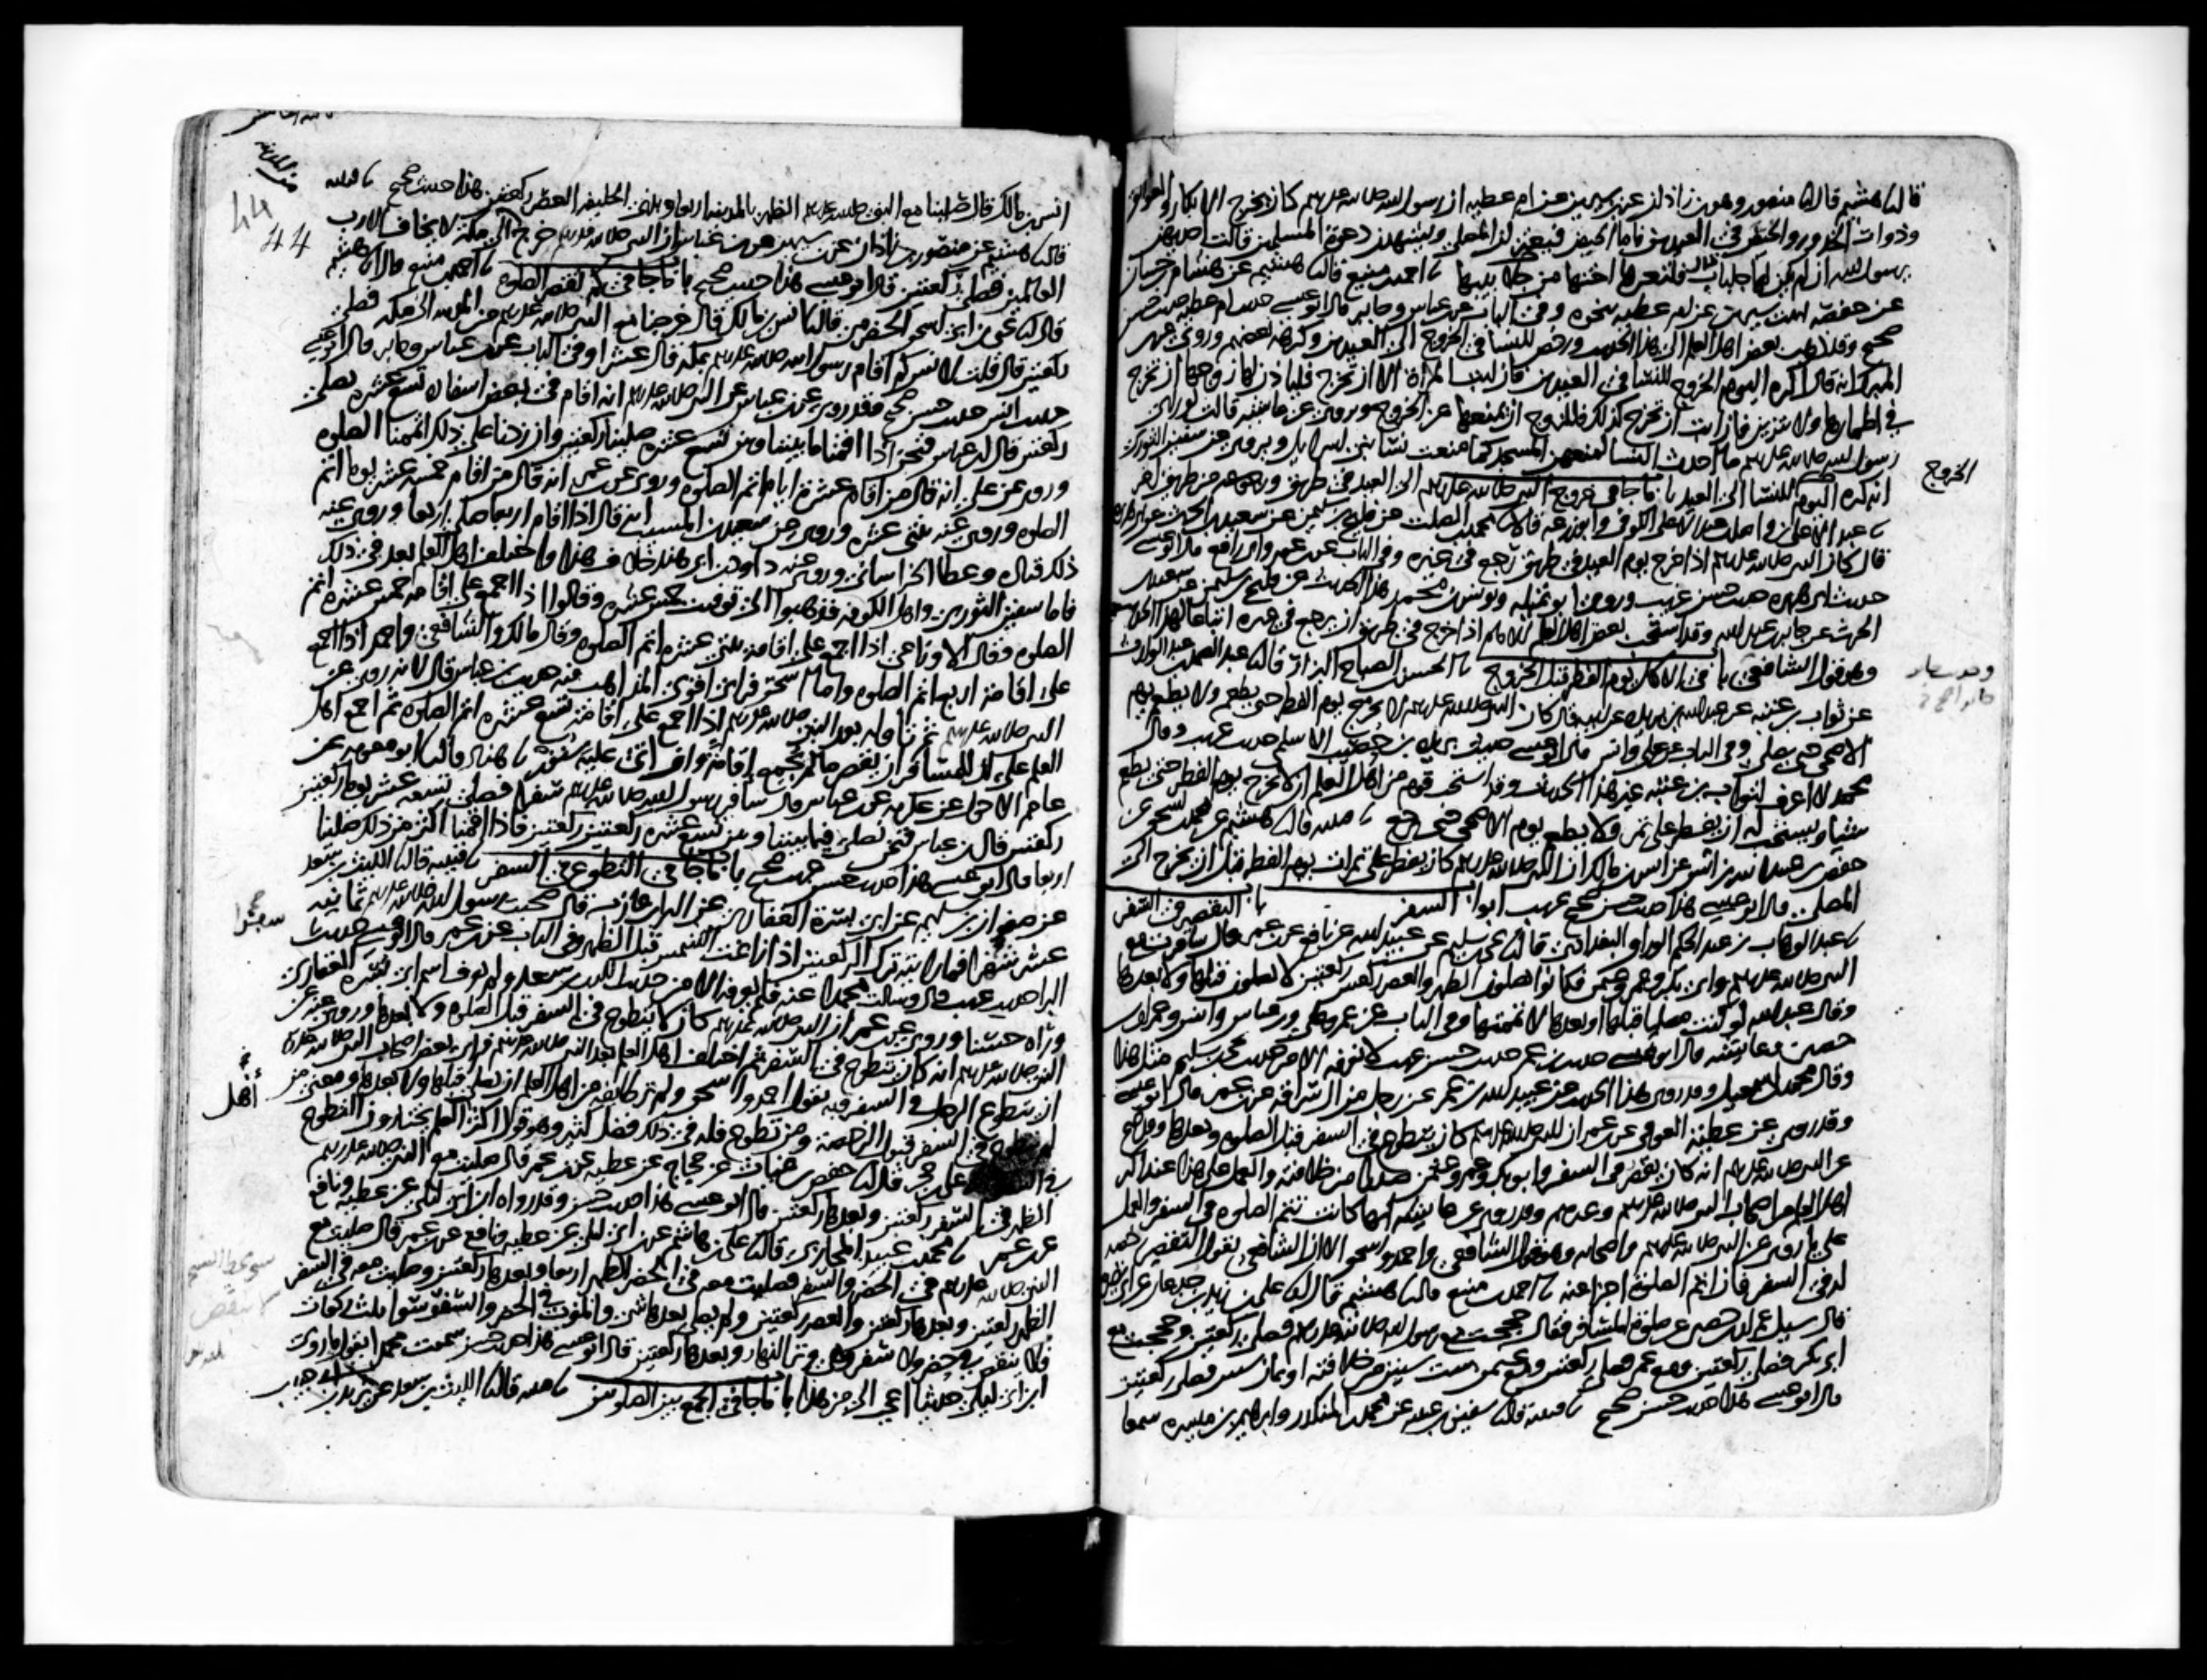 قال نا هشيم قال نا منصور وهو بن زاذان عن بن سيرين عن ام عطيه ان رسول الله صلى الله عليه وسلم كان يخرج الابكار والعواتق
وذوات الخدور والحيض في العيدين فاما الحيض فيعتزلن المصلى ويشهدن دعوة المسلمين قالت احداهن
يرسول الله ان لم يكن لها جلباب قال فلتعرها اختها من جلابيبها نا احمد بن منيع قال نا هشيم عن هشام بن حسان
عن حفصه ابنت سيرين عن ام عطيه بنحوه وفي الباب عن بن عباس وجابر قال ابو عيسى حديث ام عطيه حديث حسن
صحيح وقد ذهب بعض اهل العلم الى هذا الحديث ورخص للنسا في الخروج الى العيدين وكرهه بعضهم وروي عن بن
المبرك انه قال اكره اليوم الخروج للنسا في العيدين فان ابت المراة الا ان تخرج فلياذن لها زوجها ان تخرج
في اطمارها ولا تتزين فان ابت ان تخرج كذلك فللزوج ان يمنعها عن الخروج ويروى عن عايشه قالت لو راى
رسول الله صلى الله عليه وسلم ما احدث النسا لمنعهن المسجد كما منعت نسا بني اسرايل ويروى عن سفين الثوري
انه كره اليوم للنسا الى العيد باب ما جا في خروج النبي صلى الله عليه وسلم الى العيد في طريق ورجوعه من طريق اخر
الخروج
نا عبد الاعلى بن واصل بن عبد الاعلى الكوفي وابو زرعه قالا نا محمد بن الصلت عن فليح بن سليمن عن سعيد بن الحرث عن ابي هريره
قال كان النبي صلى الله عليه وسلم اذا خرج يوم العيد في طريق رجع في غيره وفي الباب عن بن عمر وابي رافع قال ابو عيسى
حديث ابي هريره حديث حسن غريب وروى ابو تميله ويونس بن محمد هذا الحديث عن فليح بن سليمن عن سعيد بن
الحرث عن جابر بن عبد الله وقد استحب بعض اهل العلم للامام اذا خرج في طريق ان يرجع في غيره اتباعا لهذا الحديث
وهو قول الشافعي باب في الاكل يوم الفطر قبل الخروج نا الحسن بن الصباح البزار قال نا عبد الصمد بن عبد الوارث
عن ثواب بن عتبه عن عبد الله بن بريده عن ابيه قال كان النبي صلى الله عليه وسلم لا يخرج يوم الفطر حتى يطعم ولا يطعم يوم
الاضحى حتى يصلي وفي الباب عن علي وانس قال ابو عيسى حديث بريده بن حصيب الاسلمي حديث غريب وقال
محمد لا اعرف لثواب بن عتبه غير هذا الحديث وقد استحب قوم من اهل العلم ان لا يخرج يوم الفطر حتى يطعم
شيا ويستحب له ان يفطر على تمر ولا يطعم يوم الاضحى حتى يرجع نا قتيبه قال نا هشيم عن محمد بن اسحق عن
حفص بن عبيد الله بن انس عن انس بن مالك ان النبي صلى الله عليه وسلم كان يفطر على تمرات يوم الفطر قبل ان يخرج الى
المصلى قال ابو عيسى هذا حديث حسن صحيح غريب ابواب السفر باب التقصير في السفر
نا عبد الوهاب بن عبد الحكم الوراق البغدادي قال نا يحيى بن سليم عن عبيد الله عن نافع عن بن عمر قال سافرت مع
النبي صلى الله عليه وسلم وابي بكر وعمر وعثمن فكانوا يصلون الظهر والعصر ركعتين ركعتين لا يصلون قبلها ولا بعدها
وقال عبد الله لو كنت مصليا قبلها او بعدها لاتممتها وفي الباب عن عمر وعلي وبن عباس وانس وعمران بن
حصين وعايشه قال ابو عيسى حديث بن عمر حديث حسن غريب لا نعرفه الا من حديث يحيى بن سليم مثل هذا
وقال محمد بن اسمعيل وقد روي هذا الحديث عن عبيد الله بن عمر عن رجل من ال سراقه عن بن عمر قال ابو عيسى
وقد روي عن عطيه العوفي عن بن عمر ان النبي صلى الله عليه وسلم كان يتطوع في السفر قبل الصلوه وبعدها وقد صح
عن النبي صلى الله عليه وسلم انه كان يقصر في السفر وابو بكر وعمر وعثمن صدرا من خلافته والعمل على هذا عند اكثر
اهل العلم من اصحاب النبي صلى الله عليه وسلم وغيرهم وقد روي عن عايشه انها كانت تتم الصلوه في السفر والعمل
على ما روي عن النبي صلى الله عليه وسلم واصحابه وهو قول الشافعي واحمد واسحق الا ان الشافعي يقول التقصير رخصه
له في السفر فان اتم الصلوة اجزا عنه نا احمد بن منيع قال نا هشيم قال نا علي بن زيد بن جدعان عن ابي نضره
قال سيل عمران بن حصين عن صلوة المسافر فقال حججت مع رسول الله صلى الله عليه وسلم فصلى ركعتين وحججت مع
ابي بكر فصلى ركعتين ومع عمر فصلى ركعتين ومع عثمن ست سنين من خلافته او ثمان سنين فصلى ركعتين
قال ابو عيسى هذا حديث حسن صحيح نا قتيبه قال نا سفين بن عيينه عن محمد بن المنكدر وابراهيم بن ميسره سمعا
44
44
انس بن مالك قال صلينا مع النبي صلى الله عليه وسلم الظهر بالمدينه اربعا وبذي الحليفه العصر ركعتين هذا حديث صحيح نا قتيبه
قال نا هشيم عن منصور بن زاذان عن بن سيرين عن بن عباس ان النبي صلى الله عليه وسلم خرج الى مكة لا يخاف الا رب
العالمين فصلى ركعتين قال ابو عيسى هذا حديث صحيح باب ما جا في كم تقصر الصلوه نا احمد بن منيع قال نا هشيم
قال نا يحيى بن ابي اسحق الحضرمي قال نا انس بن مالك قال خرجنا مع النبي صلى الله عليه وسلم من المدينه الى مكه فصلى
ركعتين قال قلت لانس كم اقام رسول الله صلى الله عليه وسلم بمكه قال عشرا وفي الباب عن بن عباس وجابر قال ابو عيسى
حديث انس حديث حسن صحيح وقد روي عن بن عباس عن النبي صلى الله عليه وسلم انه اقام في بعض اسفاره تسع عشره يصلي
ركعتين قال بن عباس فنحن اذا اقمنا ما بيننا وبين تسع عشره صلينا ركعتين وان زدنا على ذلك اتممنا الصلوه
وروي عن علي انه قال من اقام عشرة ايام اتم الصلوه وروي عن بن عمر انه قال من اقام خمسة عشر يوما اتم
الصلوه وروي عنه ثنتي عشره وروي عن سعيد بن المسيب انه قال اذا اقام اربعا صلى اربعا وروى عنه
ذلك قتاده وعطا الخراساني وروى عنه داود بن ابي هند خلاف هذا واختلف اهل العلم بعد في ذلك
فاما سفين الثوري واهل الكوفه فذهبوا الى توقيت خمس عشره وقالوا اذا اجمع على اقامه خمس عشره اتم
الصلوه وقال الاوزاعي اذا اجمع على اقامة ثنتي عشره اتم الصلوه وقال مالك والشافعي واحمد اذا اجمع
على اقامة اربع اتم الصلوه واما اسحق فراى اقوى المذاهب فيه حديث بن عباس قال لانه روى عن
النبي صلى الله عليه وسلم ثم تاوله بعد النبي صلى الله عليه وسلم اذا اجمع على اقامة تسع عشره اتم الصلوه ثم اجمع اهل
العلم على ان للمسافر ان يقصر ما لم يجمع اقامة وان اتى عليه سنون نا هناد قال نا ابو معويه عن
عاصم الاحول عن عكرمه عن بن عباس قال سافر رسول الله صلى الله عليه وسلم سفرا فصلى تسعه عشر يوما ركعتين
ركعتين قال بن عباس فنحن نصلي فيما بيننا وبين تسع عشره ركعتين ركعتين فاذا اقمنا اكثر من ذلك صلينا
اربعا قال ابو عيسى هذا حديث حسن غريب صحيح باب ما جا في التطوع في السفر نا قتيبه قال نا الليث بن سعد
عن صفوان بن سليم عن ابي بسرة الغفاري عن البرا بن عازب قال صحبت رسول الله صلى الله عليه وسلم ثمانيه
عشر شهرا فما رايته ترك الركعتين اذا زاغت الشمس قبل الظهر وفي الباب عن بن عمر قال ابو عيسى حديث
سفرا
البرا حديث غريب قال وسالت محمدا عنه فلم يعرفه الا من حديث الليث بن سعد ولم يعرف اسم ابي بسره الغفاري
وراه حسنا وروي عن بن عمر ان النبي صلى الله عليه وسلم كان لا يتطوع في السفر قبل الصلوه ولا بعدها وروي عنه عن
النبي صلى الله عليه وسلم انه كان يتطوع في السفر ثم اختلف اهل العلم بعد النبي صلى الله عليه وسلم فراى بعض اصحاب النبي صلى الله عليه وسلم
ان يتطوع الرجل في السفر وبه يقول احمد واسحق ولم ير طايفه من اهل العلم ان يصلى قبلها ولا بعدها ومعنى من
أهل
لم يتطوع في السفر قبول الرخصة ومن تطوع فله في ذلك فضل كثير وهو قول اكثر اهل العلم يختارون التطوع
في السفر علي بن حجر قال نا حفص بن غياث عن حجاج عن عطيه عن بن عمر قال صليت مع النبي صلى الله عليه وسلم
الظهر في السفر ركعتين وبعدها ركعتين قال ابو عيسى هذا حديث حسن وقد رواه ابن ابي ليلى عن عطيه ونافع
عن بن عمر نا محمد بن عبيد المحاربي قال نا علي بن هاشم عن ابن ابي ليلى عن عطيه ونافع عن بن عمر قال صليت مع
النبي صلى الله عليه وسلم في الحضر والسفر فصليت معه في الحضر الظهر اربعا وبعدها ركعتين وصليت معه في السفر
الظهر ركعتين وبعدها ركعتين والعصر ركعتين ولم يصل بعدها شيا والمغرب في الحضر والسفر سوا ثلث ركعات
لا ينقص
ولا ينقص في حضر ولا سفر وهي وتر النهار وبعدها ركعتين قال ابو عيسى هذا حديث حسن سمعت محمدا يقول ما روى
ابن ابي ليلى حديثا اعجب الي من هذا باب ما جا في الجمع بين الصلوتين نا قتيبه قال نا الليث بن سعد عن يزيد بن ابي حبيب